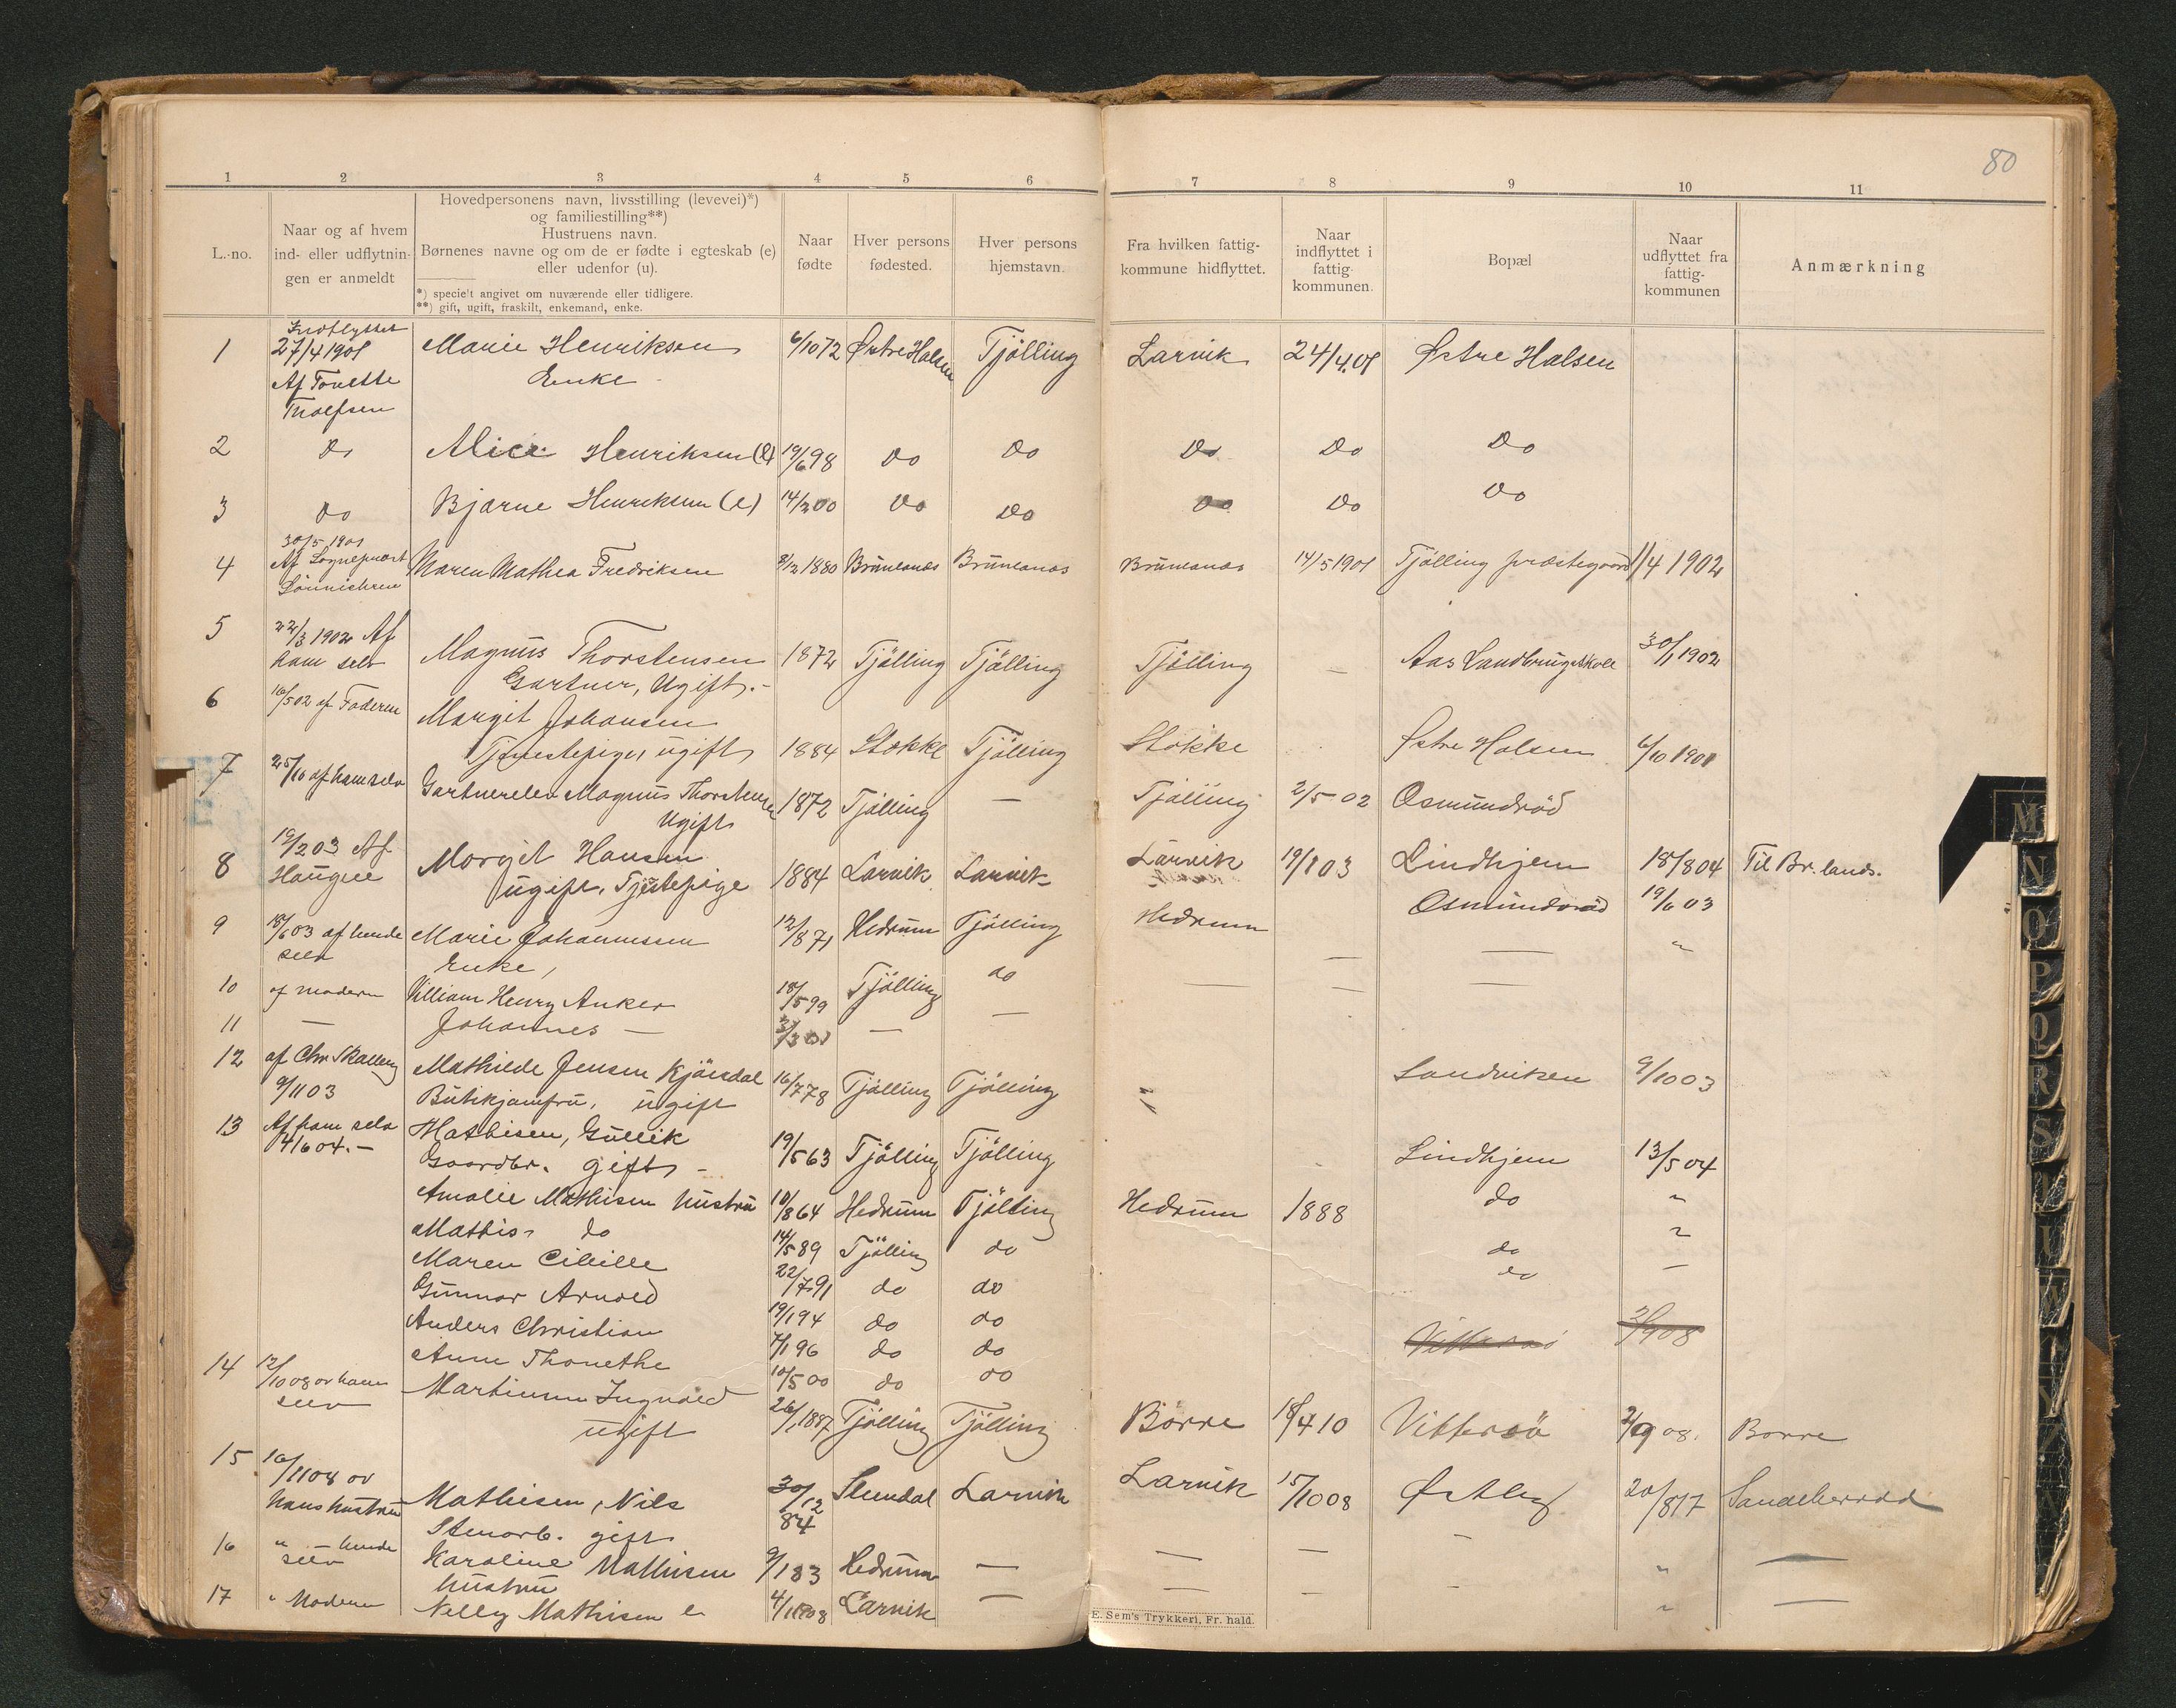 80
1 2 3 4 5 6 7 8 9 10 11
L.-no.
Naar og af hvem
ind- eller udflytnin-
gen er anmeldt
Hovedpersonens navn, livsstilling (levevei)*)
og familiestilling**)
Hustruens navn.
Børnenes navne og om de er fødte i egteskab (e)
eller udenfor (u).
*) specielt angivet om nuværende eller tidligere.
**) gift, ugift, fraskilt, enkemand, enke.
Naar
fødte
Hver persons
fødested.
Hver persons
hjemstavn.
Fra hvilken fattig-
kommune hidflyttet.
Naar
indflyttet i
fattig-
kommunen.
Bopæl
Naar
udflyttet fra
fattig-
kommunen
Anmærkning
Indflyttet
1 27/4 1901 Marie Henriksen 6/10 72 Østre Halsen Tjølling Larvik 24/4.01 Østre Halsen
Af Tonette Enke
Tholfsen
2 Do Alice Henriksen (e) 19/6 98 Do Do Do Do Do
3 Do Bjarne Henriksen (e) 14/2 00 Do Do Do Do Do
30/5 1901
4 Af Sogneprest Maren Mathea Fredriksen 3/12 1880 Brunlanæs Brunlanæs Brunlanæs 14/5 1901 Tjølling præstegaard 11/4 1902
5 22/3 1902 Af
ham selv Magnus Thorstensen 1872 Tjølling Tjølling Tjølling — Aas Landbrugskole 30/1 1902
Gartner, Ugift.-
6 16/5 02 af Faderen Margit Johansen
Tjenestepige, ugift 1884 Stokke Tjølling Stokke Østre Halsen 6/10 1901
7 25/10 af ham selv Gartnerelev Magnus Thorstensen 1872 Tjølling — Tjølling 2/5 02 Osmundrød
Ugift
19/2 03 Af
8 Haugene Margit Hansen 1884 Larvik Larvik Larvik 19/1 03 Lindhjem 18/8 04 Til Br. lands.
ugift, Tjenestepige
9 18/6 03 af hende Marie Johannessen 12/8 71 Hedrum Tjølling Hedrum Osmundrød 19/6 03
selv Enke,
10 af moderen William Henry Anker 18/5 99 Tjølling do
11 — Johannes — 3/3 01 — —
12 af Chr Skalleng Mathilde Jensen Kjærdal 16/7 78 Tjølling Tjølling " Sandviken 9/10 03
9/11 03 Butikjomfru, ugift
13 Af ham selv Mathisen, Gullik
4/6 04.- Gaardbr. gift - 19/5 63 Tjølling Tjølling Lindhjem 13/5 04
Amalie Mathisen hustru 10/8 64 Hedrum Tjølling Hedrum 1888 do "
Mathis - do 14/5 89 Tjølling do do "
Maren Cicilie 22/7 91 do do do —
Gunnar Arnold 19/1 94 do do
Anders Christian 7/1 96 do do Vittersø 2/9 08
Anne Thonethe 10/5 00 do do
14 12/10 08 av ham Martinius Ingvald 26/1 1887 Tjølling Tjølling Borre 18/4 10 Vittersø 2/9 08. Borre
selv ugift
15 16/11 08 av
hans hustru Mathisen, Nils 30/12 84 Slemdal Larvik Larvik 15/10 08 Østby 20/8 17 Sandeherred
Stenarb. gift
16 " hende Karoline Mathisen 9/1 83 Hedrum — — — - " —
selv hustru
17 " Moderen Nelly Mathisen e 4/1 1908 Larvik — — — - " —
E. Sem's Trykkeri, Fr. hald.
M
N
O
P
Q
R
S
T
U